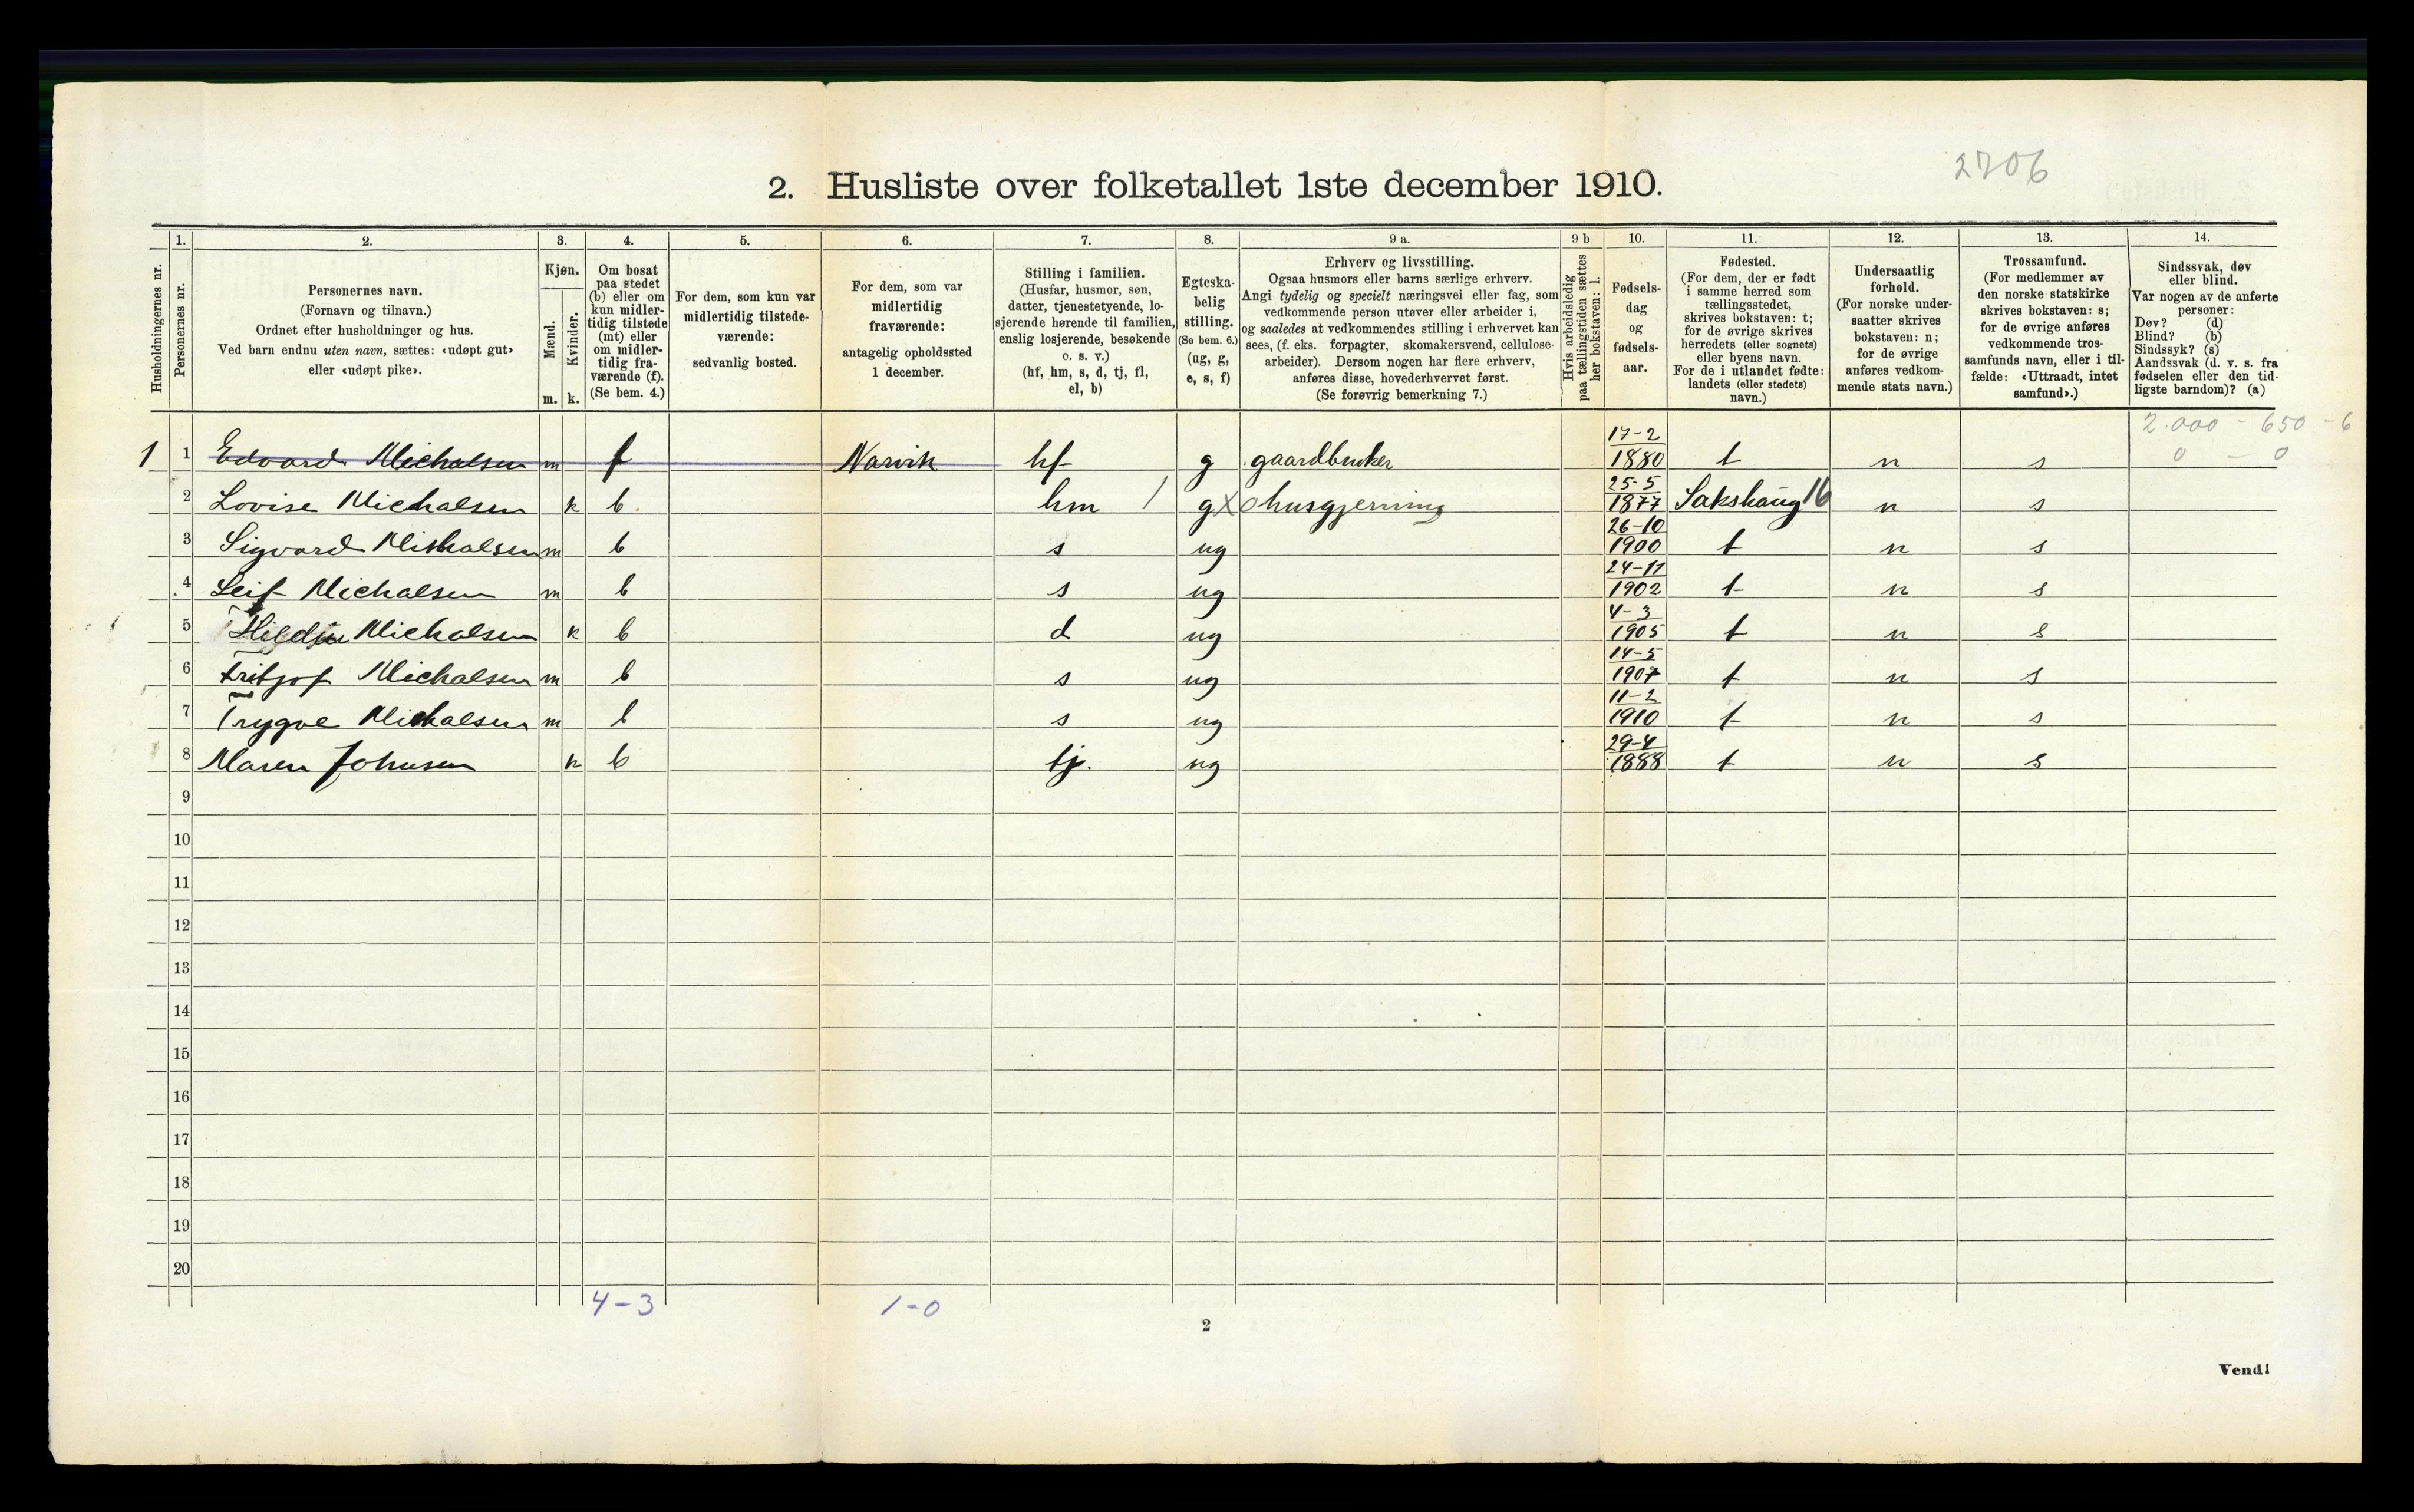 2706
2. Husliste over folketallet 1ste december 1910.
Husholdningernes nr.
1.
Personernes nr.
2.
Personernes navn.
(Fornavn og tilnavn.)
Ordnet efter husholdninger og hus.
Ved barn endnu uten navn, sættes: «udøpt gut»
eller «udøpt pike».
3.
Kjøn.
Mænd.
Kvinder.
m. k.
4.
Om bosat
paa stedet
(b) eller om
kun midler-
tidig tilstede
(mt) eller
om midler-
tidig fra-
værende (f).
(Se bem. 4.)
5.
For dem, som kun var
midlertidig tilstede-
værende:
sedvanlig bosted.
6.
For dem, som var
midlertidig
fraværende:
antagelig opholdssted
1 december.
7.
Stilling i familien.
(Husfar, husmor, søn,
datter, tjenestetyende, lo-
sjerende hørende til familien,
enslig losjerende, besøkende
o. s. v.)
(hf, hm, s, d, tj, fl,
el, b)
8.
Egteska-
belig
stilling.
(Se bem. 6.)
(ug, g,
e, s, f)
9 a.
Erhverv og livsstilling.
Ogsaa husmors eller barns særlige erhverv.
Angi tydelig og specielt næringsvei eller fag, som
vedkommende person utøver eller arbeider i,
og saaledes at vedkommendes stilling i erhvervet kan
sees, (f. eks. forpagter, skomakersvend, cellulose-
arbeider). Dersom nogen har flere erhverv,
anføres disse, hovederhvervet først.
(Se forøvrig bemerkning 7.)
9 b
Hvis arbeidsledig
paa tællingstiden sættes
her bokstaven: l.
10.
Fødsels-
dag
og
fødsels-
aar.
11.
Fødested.
(For dem, der er født
i samme herred som
tællingsstedet,
skrives bokstaven: t;
for de øvrige skrives
herredets (eller sognets)
eller byens navn.
For de i utlandet fødte:
landets (eller stedets)
navn.)
12.
Undersaatlig
forhold.
(For norske under-
saatter skrives
bokstaven: n;
for de øvrige
anføres vedkom-
mende stats navn.)
13.
Trossamfund.
(For medlemmer av
den norske statskirke
skrives bokstaven: s;
for de øvrige anføres
vedkommende tros-
samfunds navn, eller i til-
fælde: «Uttraadt, intet
samfund».)
14.
Sindssvak, døv
eller blind.
Var nogen av de anførte
personer:
Døv? (d)
Blind? (b)
Sindssyk? (s)
Aandssvak (d. v. s. fra
fødselen eller den tid-
ligste barndom)? (a)
2.000 - 650 - 6
0 - 0
1 1 Edvard Michalsen m f Narvik hf g gaardbruker 17-2 1880 t n s
2 Lovise Michalsen k b hm / g x o husgjerning 25-5 1877 Sakshaug 16 n s
3 Sigvard Michalsen m b s ug 26-10 1900 t n s
4 Leif Michalsen m b s ug 24-11 1902 t n s
5 Michalsen k b d ug 4-3 1905 t n s
6 Fritjof Michalsen m b s ug 14-5 1907 t n s
7 Trygve Michalsen m b s ug 11-2 1910 t n s
8 Maren Johnsen k b tj. ug 29-4 1888 t n s
9
10
11
12
13
14
15
16
17
18
19
20
4-3 1-0
2
Vend!